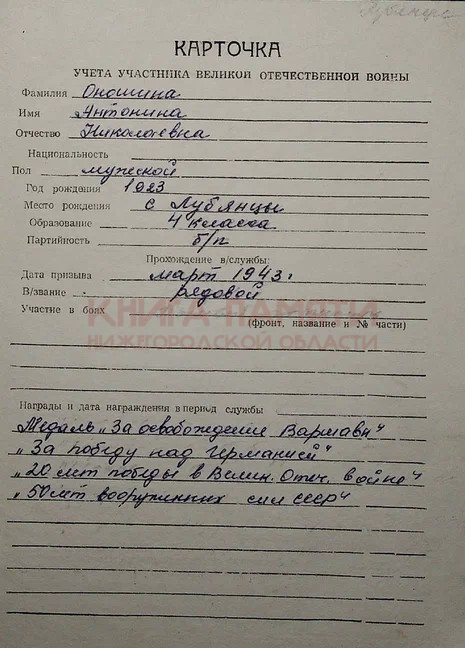 Лубянцы
КАРТОЧКА
УЧЕТА УЧАСТНИКА ВЕЛИКОЙ ОТЕЧЕСТВЕННОЙ ВОЙНЫ
Фамилия Оношина
Имя Антонина
Отчество Николаевна
Национальность
Пол мужской
Год рождения 1923
Место рождения с Лубянцы
Образование 4 класса
Партийность б/п
Прохождение в/службы:
Дата призыва март 1943г
В/звание рядовой
КНИГА ПАМЯТИ
Участие в боях
(фронт, название и № части)
НИЖЕГОРОДСКОЙ ОБЛАСТИ
Награды и дата награждения в период службы
Медаль „За освобождение Варшавы"
„За победу над Германией"
„20 лет победы в Велик. Отеч. войне"
„50 лет вооруженных сил СССР"